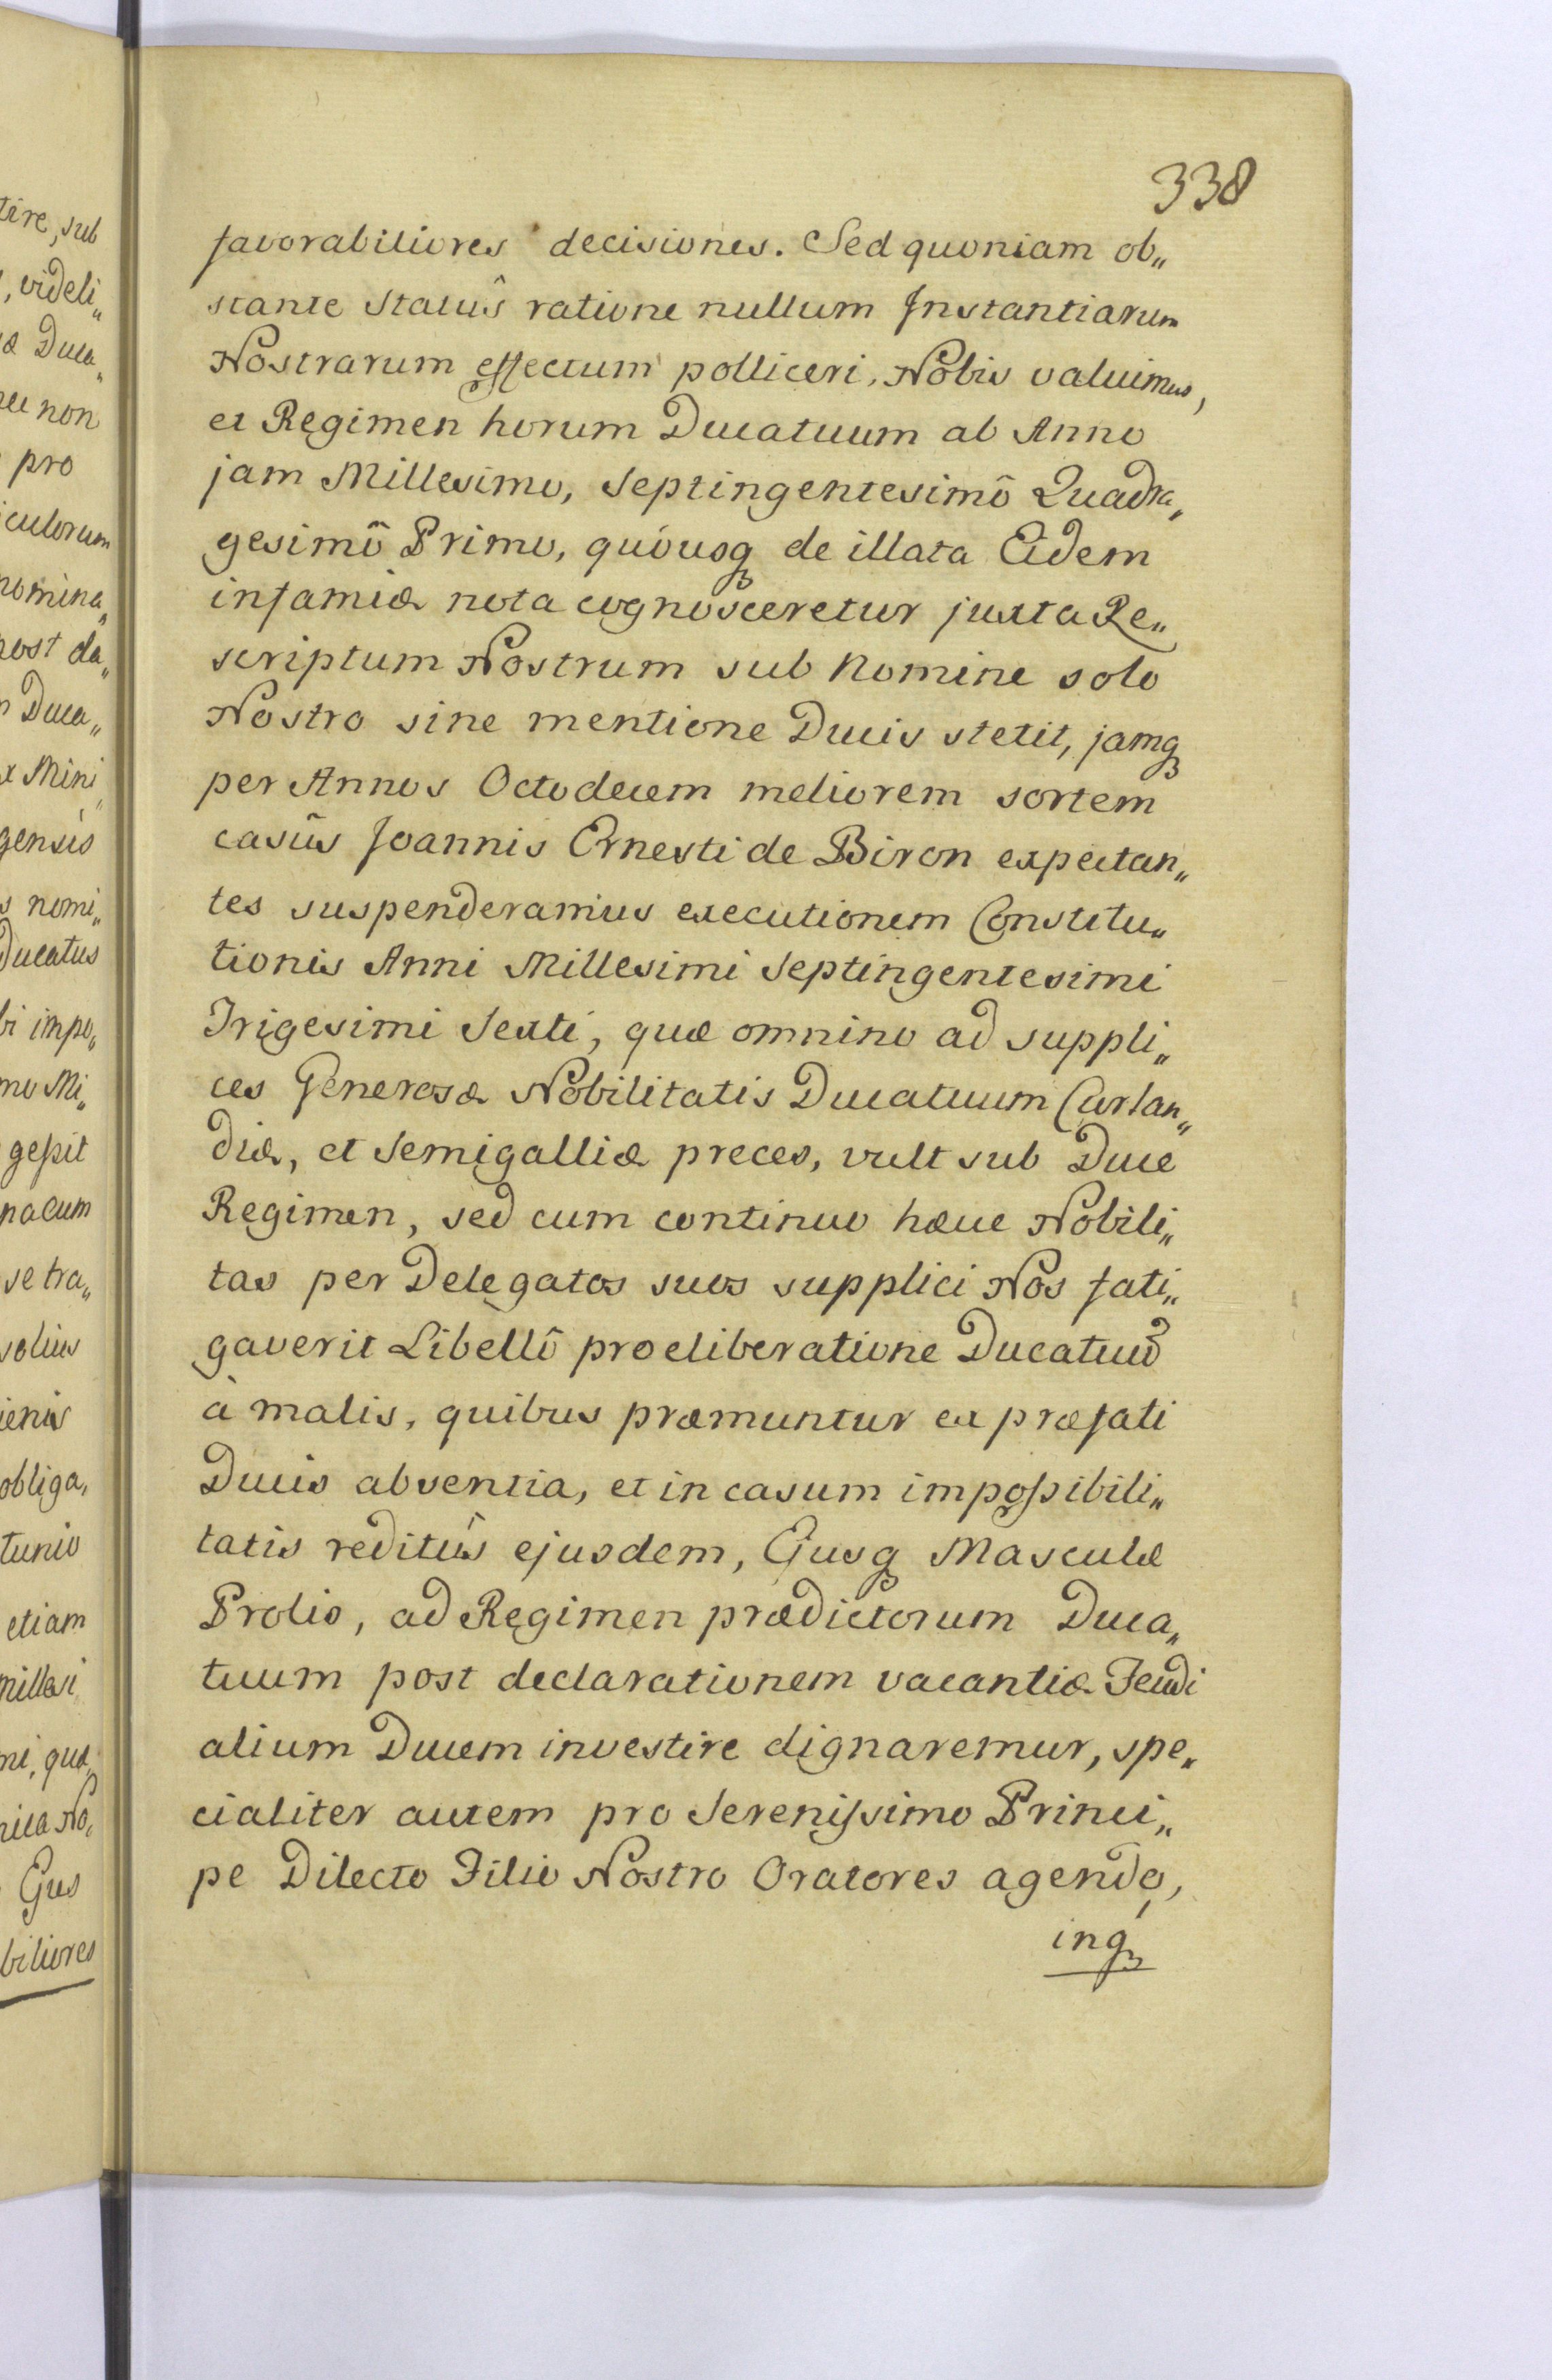 338
favorabiliores decisiones. Sed quoniam ob„
stante Statûs ratione nullum Instantiarum
Nostrarum effectum polliceri, Nobis valuimus,
et Regimen horum Ducatuum ab Anno
jam Millesimo, Septingentesimô Quadra„
gesimô Primo, quóusq de illata Eidem
infamiæ nota cognosceretur juxta Re„
scriptum Nostrum sub Nomine solo
Nostro sine mentione Ducis stetit, jamq
per Annos Octodecem meliorem sortem
casûs Joannis Ernesti de Biron expectan„
tes suspenderamus executionem Constitu„
tionis Anni Millesimi Septingentesimi
Trigesimi Sexti, quæ omnino ad suppli„
ces Generosæ Nobilitatis Ducatuum Curlan„
diæ, et Semigalliæ preces, vult sub Duce
Regimen, sed cum continuo hæce Nobili„
tas per Delegatos suos supplici Nos fati„
gaverit Libellô pro eliberatione Ducatuū
à malis, quibus præmuntur ex præfati
Ducis absentia, et in casum impossibili„
tatis reditûs ejusdem, Ejusq Masculæ
Prolis, ad Regimen prædictorum Duca„
tuum post declarationem vacantiæ Feudi
alium Ducem investire dignaremur, spe„
cialiter autem pro Serenissimo Princi„
pe Dilecto Filio Nostro Oratores agendo,
inq
tire, sub
, videli„
æ Duca„
non
pro
iculorum
nomina„
post da„
Duca„
x Mini„
gensis
s nomi„
Ducatus
bi impo„
mo Mi„
gessit
nacum
se tra„
solius
obliga„
etiam
No„
Ejus
biliores